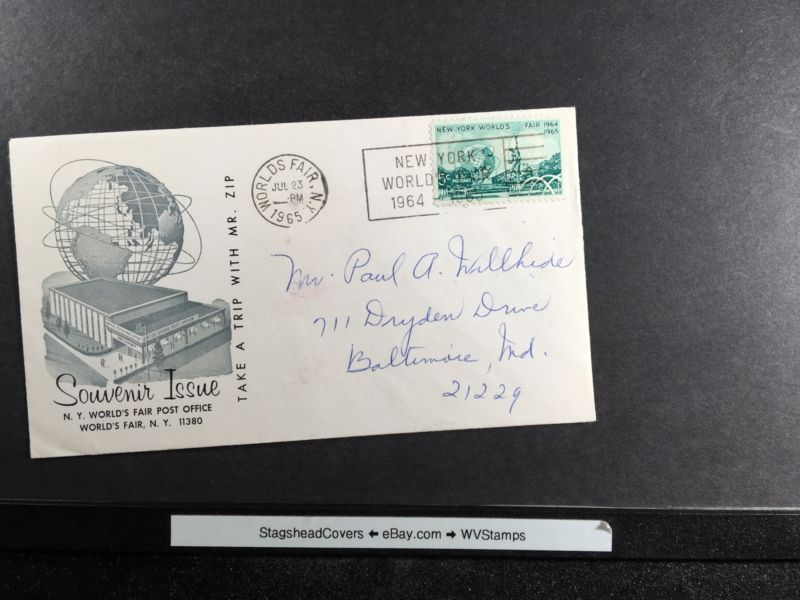 NEW YORK WORLD'S FAIR 1964
1965
5¢
WORLDS FAIR, N.Y.
JUL 23
PM
1965
NEW YORK
WORLD
1964
TAKE A TRIP WITH MR. ZIP
Mr. Paul A. Willhide
711 Dryden Drive
Baltimore, Md.
21229
Souvenir Issue
N. Y. WORLD'S FAIR POST OFFICE
WORLD'S FAIR, N. Y. 11380
StagsheadCovers ← eBay.com → WVStamps